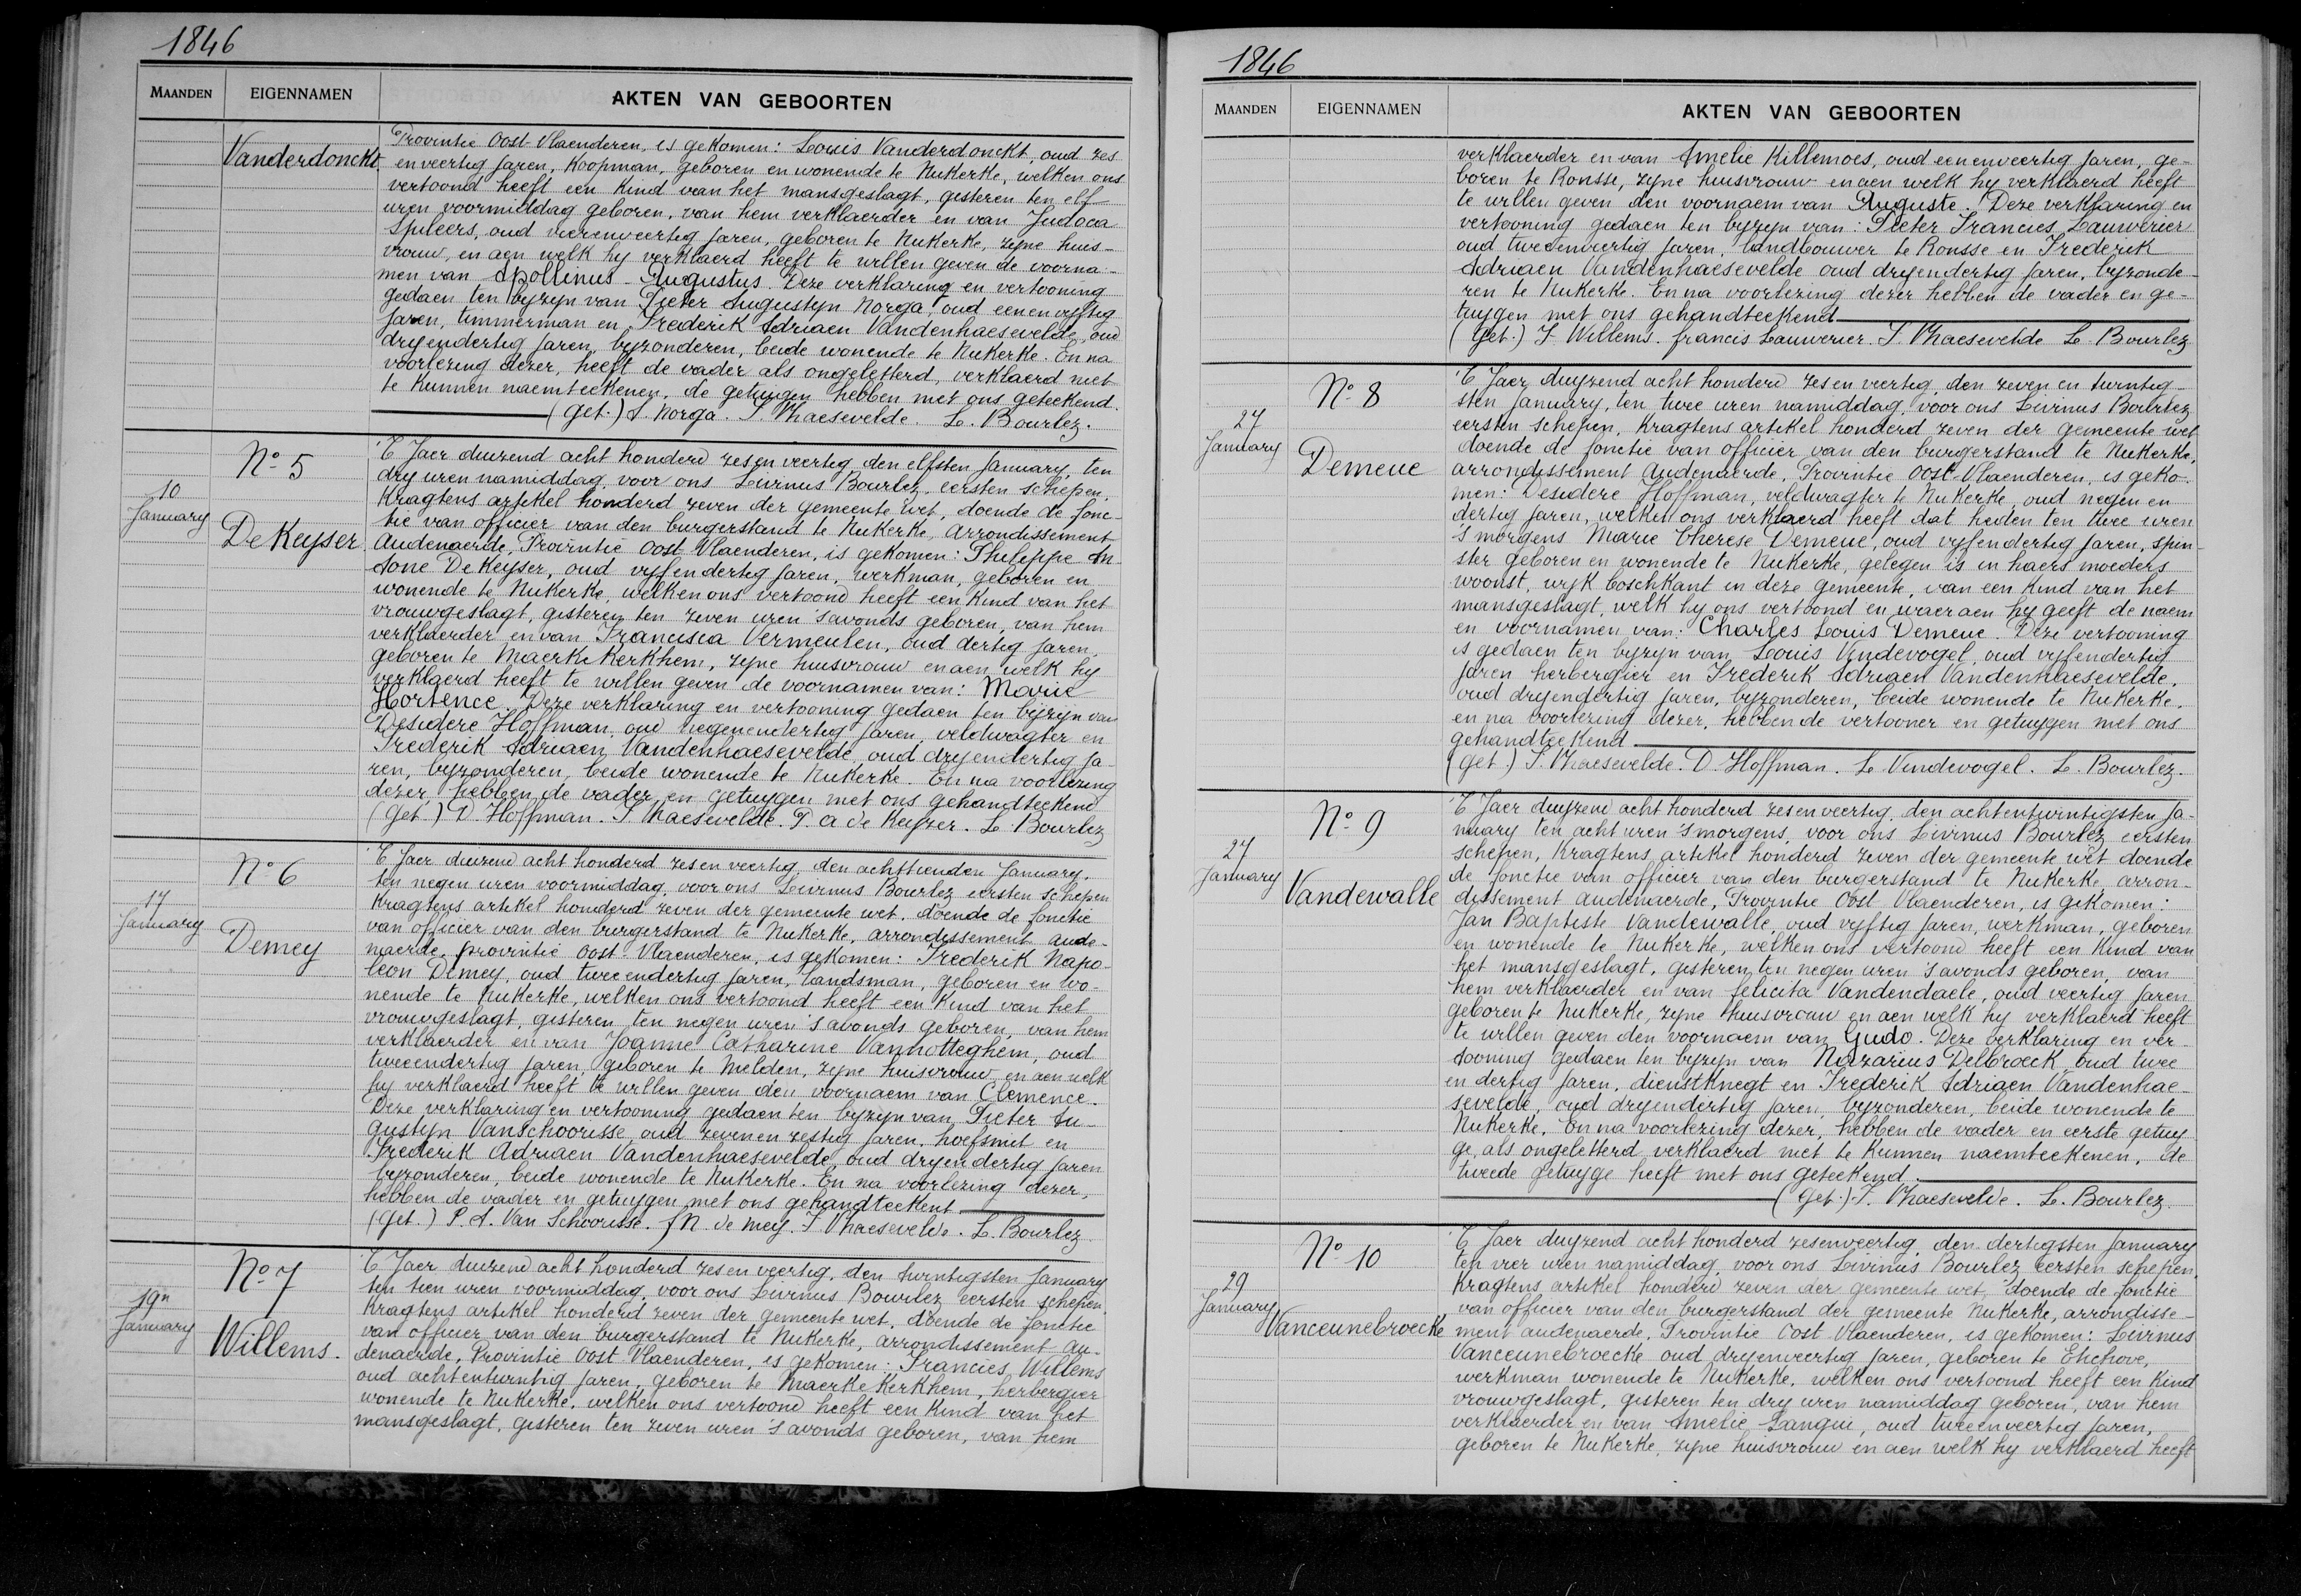 1846
MAANDEN EIGENNAMEN AKTEN VAN GEBOORTEN
Vanderdonckt.
Provintie Oost-Vlaenderen, is gekomen: Louis Vanderdonckt, oud zes
enveertig jaren, Koopman, geboren en wonende te Nukerke, welken ons
vertoond heeft een Kind van het mansgeslagt, gisteren ten elf
uren voormiddag geboren, van hem verklaerder en van Judoca
Spileers, oud vierenveertig jaren, geboren te Nukerke, zyne huis-
vrouw, en aen welk hy verklaerd heeft te willen geven de voorna-
men van Apollinus-Augustus. Deze verklaring en vertooning
gedaen ten byzyn van Pieter Augustyn Norga, oud eenenvyftig
jaren, timmerman en Frederik Adriaen Vandenhaesevelde, oud
dryendertig jaren, byzonderen, beide wonende te Nukerke. En na
voorlezing dezer, heeft de vader als ongeletterd, verklaerd niet
te kunnen naemteekenen, de getuigen hebben met ons geteekend.
(get.) A. Norga. F. Vhaesevelde. L. Bourlez.
10
January
N° 5
De Keyser
'T Jaer duizend acht honderd zesenveertig, den elfsten January, ten
dry uren namiddag, voor ons Livinus Bourlez, eersten schepen,
Kragtens artikel honderd zeven der gemeente wet, doende de fonc-
tie van officier van den burgerstand te Nukerke, Arrondissement
Audenaerde, Provintie Oost Vlaenderen, is gekomen: Philippe An-
tone De Keyser, oud vyfendertig jaren, werkman, geboren en
wonende te Nukerke, welken ons vertoond heeft een Kind van het
vrouwgeslagt, gisteren ten zeven uren 's avonds geboren, van hem
verklaerder en van Francisca Vermeulen, oud dertig jaren,
geboren te Maerke Kerkhem, zyne huisvrouw en aen welk hy
verklaerd heeft te willen geven de voornamen van: Marie
Hortence. Deze verklaring en vertooning gedaen ten byzyn van
Desidere Hoffman, oud negenendertig jaren, veldwagter en
Frederik Adriaen Vandenhaesevelde, oud dryendertig ja-
ren, byzonderen, beide wonende te Nukerke. En na voorlezing
dezer, hebben de vader en getuygen met ons gehandteekend
(get.) D. Hoffman. F. Vhaesevelde. P. a de Keyzer. L. Bourlez
17
January
N° 6
Demey
'T Jaer duizend acht honderd zesenveertig, den achttienden January,
ten negen uren voormiddag, voor ons Livinus Bourlez eersten schepen
Kragtens artikel honderd zeven der gemeente wet, doende de fonctie
van officier van den burgerstand te Nukerke, arrondissement Aude-
naerde, provintie Oost-Vlaenderen, is gekomen: Frederik Napo-
leon Demey, oud tweeendertig jaren, landsman, geboren en wo-
nende te Nukerke, welken ons vertoond heeft een Kind van het
vrouwgeslagt, gisteren ten negen uren 's avonds geboren, van hem
verklaerder en van Joanne Catharine Vanhotteghem, oud
tweeendertig jaren, geboren te Melden, zyne huisvrouw en aen welk
hy verklaerd heeft te willen geven den voornaem van Clemence.
Deze verklaring en vertooning gedaen ten byzyn van Pieter Au-
gustyn Vanschoorisse, oud zevenenzestig jaren, hoefsmit en
Frederik Adriaen Vandenhaesevelde, oud dryendertig jaren
byzonderen, beide wonende te Nukerke. En na voorlezing dezer,
hebben de vader en getuygen met ons gehandteekent
(get.) P. A. Van Schoorisse. f N. de mey. F Vhaesevelde. L. Bourlez
19n
January
N° 7
Willems.
'T Jaer duizend acht honderd zesenveertig, den twintigsten January
ten tien uren voormiddag, voor ons Livinus Bourlez eersten schepen
Kragtens artikel honderd zeven der gemeente wet, doende de fonctie
van officier van den burgerstand te Nukerke, arrondissement Au-
denaerde, Provintie Oost-Vlaenderen, is gekomen: Francies Willems
oud achtentwintig jaren, geboren te Maerke Kerkhem, herbergier
wonende te Nukerke, welken ons vertoond heeft een Kind van het
mansgeslagt, gisteren ten zeven uren 's avonds geboren, van hem
1846
MAANDEN EIGENNAMEN AKTEN VAN GEBOORTEN
verklaerder en van Amelie Killemoes, oud eenenveertig jaren, ge-
boren te Ronsse, zyne huisvrouw en aen welk hy verklaerd heeft
te willen geven den voornaem van Auguste. Deze verklaring en
vertooning gedaen ten byzyn van: Pieter Francies Lauwerier
oud tweeenveertig jaren, landbouwer te Ronsse en Frederik
Adriaen Vandenhaesevelde oud dryendertig jaren, byzonde-
ren te Nukerke. En na voorlezing dezer hebben de vader en ge-
tuygen met ons gehandteekend
(get.) F Willems. francis Lauwerier. F. Vhaesevelde L. Bourlez
27
January
N° 8
Demeue
'T Jaer duyzend acht honderd zesenveertig, den zeven en twintig-
sten January, ten twee uren namiddag, voor ons Livinus Bourlez
eersten schepen, Kragtens artikel honderd zeven der gemeente wet
doende de fonctie van officier van den burgerstand te Nukerke,
arrondissement Audenaerde, Provintie Oost-Vlaenderen, is geko-
men: Desidere Hoffman, veldwagter te Nukerke, oud negen en
dertig jaren, welken ons verklaerd heeft dat heden ten twee uren
's morgens Marie Therese Demeue, oud vyfendertig jaren, spin-
ster geboren en wonende te Nukerke, gelegen is in haers moeders
woonst, wyk boschkant in deze gemeente, van een kind van het
mansgeslagt, welk hy ons vertoond en waeraen hy geeft de naem
en voornamen van: Charles Louis Demeue. Deze vertooning
is gedaen ten byzyn van Louis Vindevogel, oud vyfendertig
jaren herbergier en Frederik Adriaen Vandenhaesevelde,
oud dryendertig jaren, byzonderen, beide wonende te Nukerke,
en na voorlezing dezer, hebben de vertooner en getuygen met ons
gehandteekend
(get.) F. Vhaesevelde. D. Hoffman. L. Vindevogel. L. Bourlez.
27
January
N° 9
Vandewalle
'T Jaer duyzend acht honderd zesenveertig, den achtentwintigsten Ja-
nuary ten acht uren 's morgens, voor ons Livinus Bourlez eersten
schepen, Kragtens artikel honderd zeven der gemeente wet doende
de fonctie van officier van den burgerstand te Nukerke, arron-
dissement Audenaerde, Provintie Oost Vlaenderen, is gekomen:
Jan Baptiste Vandewalle, oud vyftig jaren, werkman, geboren
en wonende te Nukerke, welken ons vertoond heeft een Kind van
het mansgeslagt, gisteren ten negen uren 's avonds geboren, van
hem verklaerder en van felicita Vandendaele, oud veertig jaren
geboren te Nukerke, zyne huisvrouw en aen welk hy verklaerd heeft
te willen geven den voornaem van Gudo. Deze verklaring en ver-
tooning gedaen ten byzyn van Nazarius Delbroeck oud twee
en dertig jaren, dienstknegt en Frederik Adriaen Vandenhae-
sevelde, oud dryendertig jaren, byzonderen, beide wonende te
Nukerke. En na voorlezing dezer, hebben de vader en eerste getuy
ge, als ongeletterd verklaerd niet te kunnen naemteekenen, de
tweede getuyge heeft met ons geteekend.
(get.) F. Vhaesevelde. L. Bourlez.
29
January
N° 10
Vanceunebroecke
'T Jaer duyzend acht honderd zesenveertig, den dertigsten January
ten vier uren namiddag, voor ons Livinus Bourlez eersten schepen,
Kragtens artikel honderd zeven der gemeente wet, doende de fonctie
van officier van den burgerstand der gemeente Nukerke, arrondisse-
ment audenaerde, Provintie Oost-Vlaenderen, is gekomen: Livinus
Vanceunebroecke oud dryenveertig jaren, geboren te Etichove,
werkman wonende te Nukerke, welken ons vertoond heeft een Kind
vrouwgeslagt, gisteren ten dry uren namiddag geboren, van hem
verklaerder en van Amelie Langui, oud tweeenveertig jaren,
geboren te Nukerke, zyne huisvrouw en aen welk hy verklaerd heeft